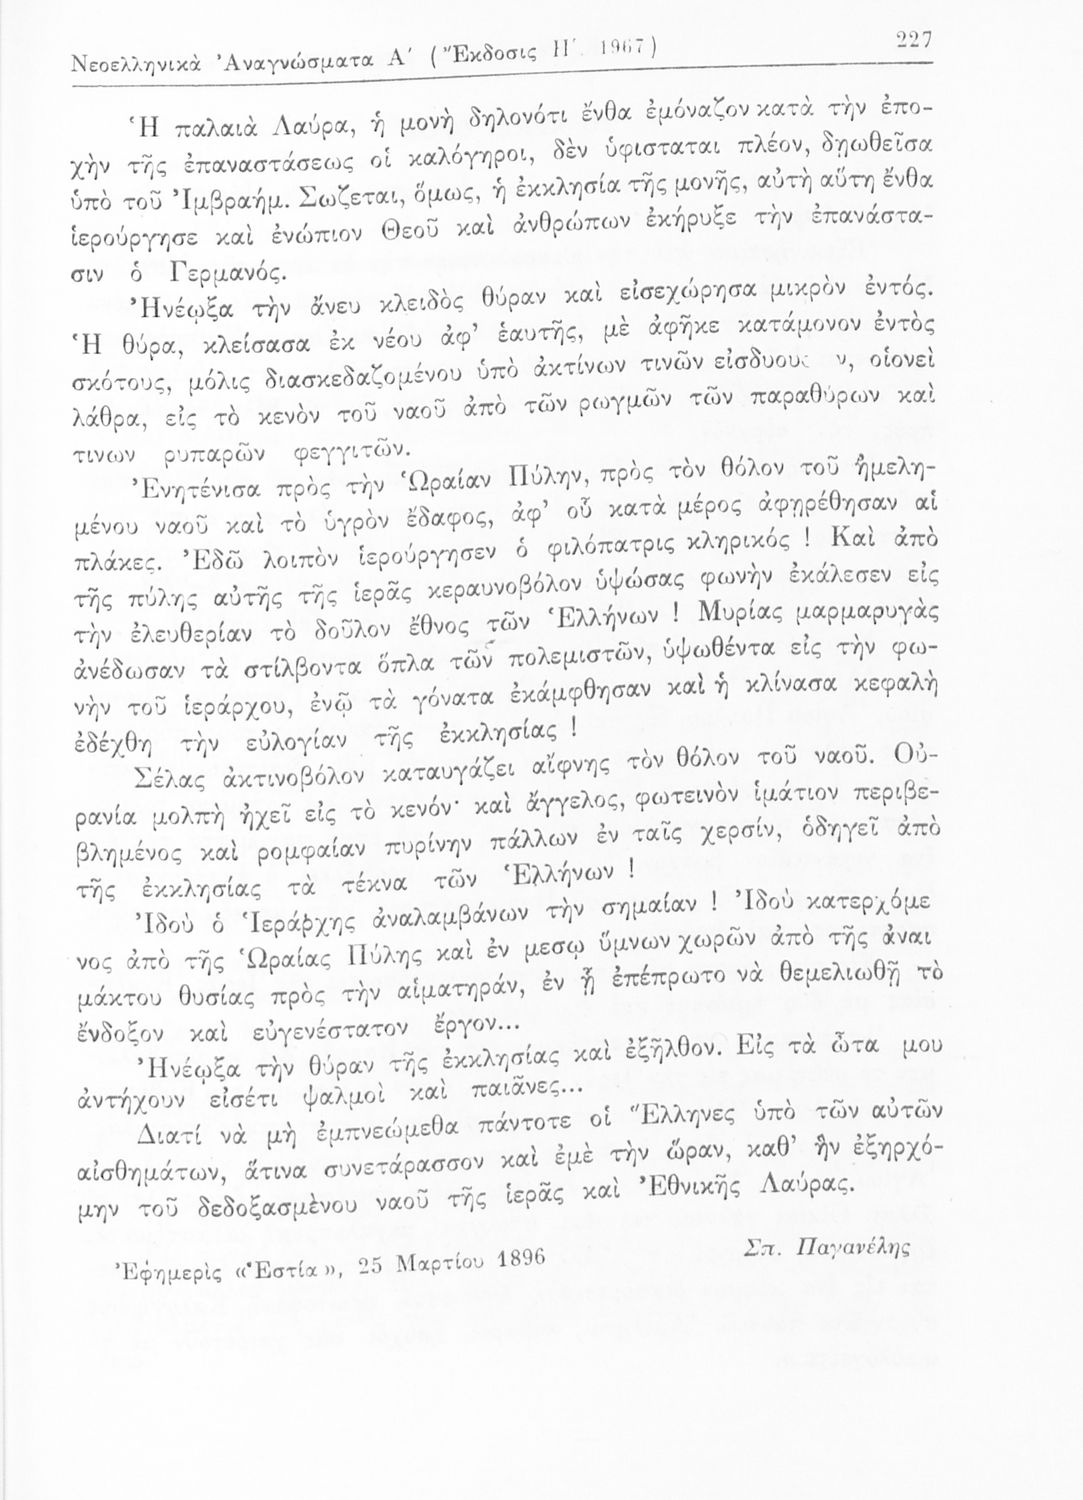 Νεοελληνικὰ Ἀναγνώσματα Α΄ (Ἔκδοσις Η΄. 1967) 227
Ἡ παλαιὰ Λαύρα, ἡ μονὴ δηλονότι ἔνθα ἐμόναζον κατὰ τὴν ἐπο-
χὴν τῆς ἐπαναστάσεως οἱ καλόγηροι, δὲν ὑφισταται πλέον, δῃωθεῖσα
ὑπὸ τοῦ Ἰμβραήμ. Σωζεται, ὅμως, ἡ ἐκκλησία τῆς μονῆς, αὐτὴ αὕτη ἔνθα
ἱερούργησε καὶ ἐνώπιον Θεοῦ καὶ ἀνθρώπων ἐκήρυξε τὴν ἐπανάστα-
σιν ὁ Γερμανός.
Ἠνέῳξα τὴν ἄνευ κλειδὸς θύραν καὶ εἰσεχώρησα μικρὸν ἐντός.
Ἡ θύρα, κλείσασα ἐκ νέου ἀφ’ ἑαυτῆς, μὲ ἀφῆκε κατάμονον ἐντὸς
σκότους, μόλις διασκεδαζομένου ὑπὸ ἀκτίνων τινῶν οἱονεὶ
λάθρα, εἰς τὸ κενὸν τοῦ ναοῦ ἀπὸ τῶν ρωγμῶν τῶν παραθύρων καὶ
τινων ρυπαρῶν φεγγιτῶν.
Ἐνητένισα πρὸς τὴν Ὡραίαν Πύλην, πρὸς τὸν θόλον τοῦ ἠμελη-
μένου ναοῦ καὶ τὸ ὑγρὸν ἔδαφος, ἀφ’ οὗ κατὰ μέρος ἀφῃρέθησαν αἱ
πλάκες. Ἐδῶ λοιπὸν ἱερούργησεν ὁ φιλόπατρις κληρικός ! Καὶ ἀπὸ
τῆς πύλης αὐτῆς τῆς ἱερᾶς κεραυνοβόλον ὑψώσας φωνὴν ἐκάλεσεν εἰς
τὴν ἐλευθερίαν τὸ δοῦλον ἔθνος τῶν Ἑλλήνων ! Μυρίας μαρμαρυγὰς
ἀνέδωσαν τὰ στίλβοντα ὅπλα τῶν πολεμιστῶν, ὑψωθέντα εἰς τὴν φω-
νὴν τοῦ ἱεράρχου, ἐνῷ τὰ γόνατα ἐκάμφθησαν καὶ ἡ κλίνασα κεφαλὴ
ἐδέχθη τὴν εὐλογίαν τῆς ἐκκλησίας !
Σέλας ἀκτινοβόλον καταυγάζει αἴφνης τὸν θόλον τοῦ ναοῦ. Οὐ-
ρανία μολπὴ ἠχεῖ εἰς τὸ κενόν· καὶ ἄγγελος, φωτεινὸν ἱμάτιον περιβε-
βλημένος καὶ ρομφαίαν πυρίνην πάλλων ἐν ταῖς χερσίν, ὁδηγεῖ ἀπὸ
τῆς ἐκκλησίας τὰ τέκνα τῶν Ἑλλήνων !
Ἰδοὺ ὁ Ἱεράρχης ἀναλαμβάνων τὴν σημαίαν ! Ἰδοὺ κατερχόμε
νος ἀπὸ τῆς Ὡραίας Πύλης καὶ ἐν μεσῳ ὕμνων χωρῶν ἀπὸ τῆς ἀναι
μάκτου θυσίας πρὸς τὴν αἱματηράν, ἐν ᾗ ἐπέπρωτο νὰ θεμελιωθῇ τὸ
ἔνδοξον καὶ εὐγενέστατον ἔργον...
Ἠνέῳξα τὴν θύραν τῆς ἐκκλησίας καὶ ἐξῆλθον. Εἰς τὰ ὦτα μου
ἀντήχουν εἰσέτι ψαλμοὶ καὶ παιᾶνες...
Διατί νὰ μὴ ἐμπνεώμεθα πάντοτε οἱ Ἕλληνες ὑπὸ τῶν αὐτῶν
αἰσθημάτων, ἅτινα συνετάρασσον καὶ ἐμὲ τὴν ὥραν, καθ’ ἣν ἐξηρχό-
μην τοῦ δεδοξασμὲνου ναοῦ τῆς ἱερᾶς καὶ Ἐθνικῆς Λαύρας.
Σπ. Παγανέλης
Ἐφημερὶς «Ἑστία», 25 Μαρτίου 1896